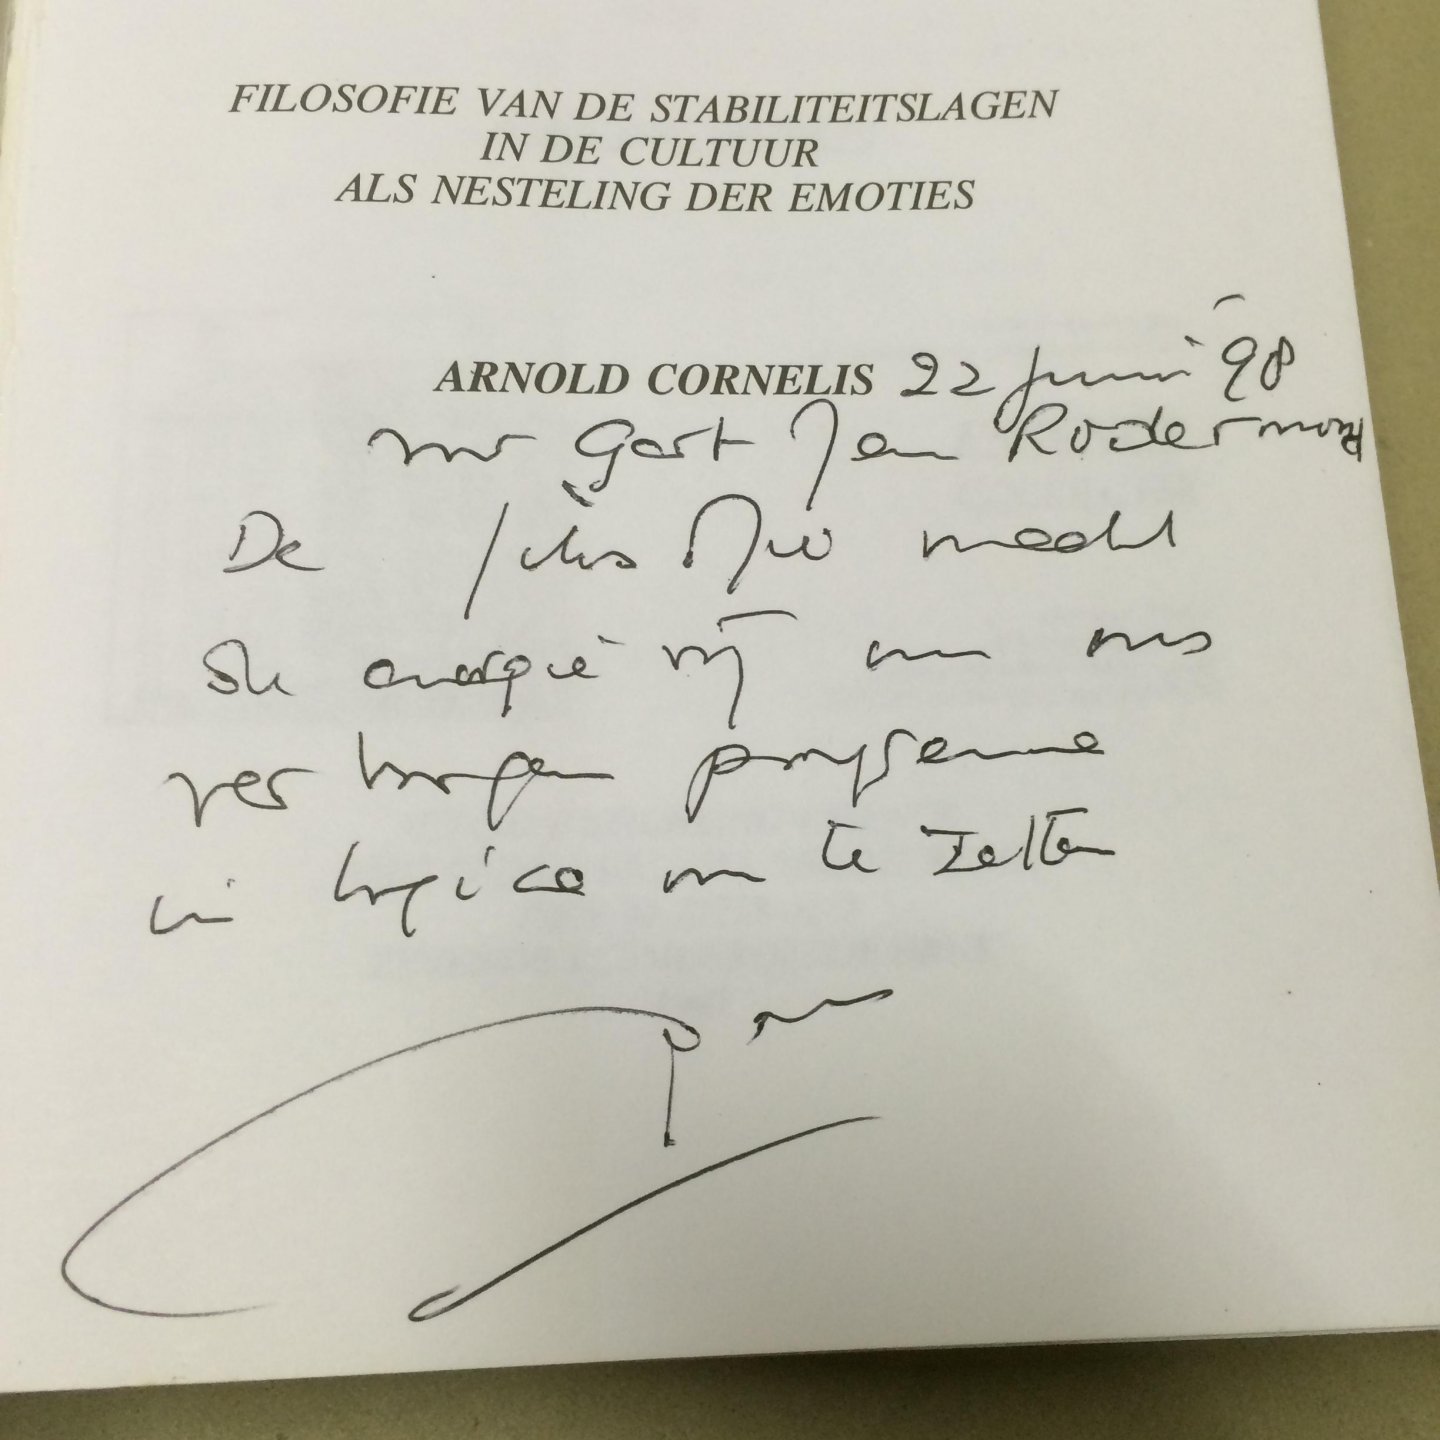 FILOSOFIE VAN DE STABILITEITSLAGEN
IN DE CULTUUR
ALS NESTELING DER EMOTIES
ARNOLD CORNELIS 22 juni '98
Gert Jan Rodermond
De filosofie maakt
de energie vrij om ons
verborgen programma
in logica om te zetten